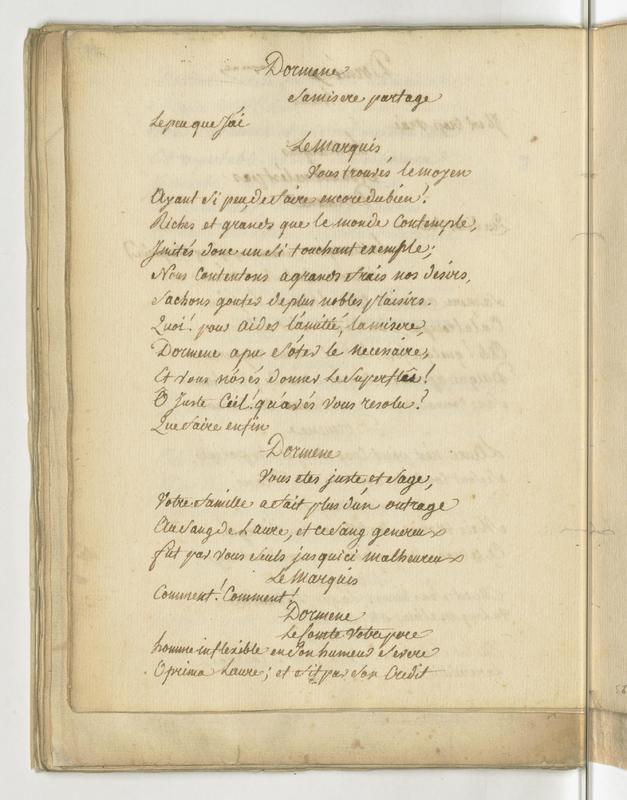 Dormene
Sa misere partage
Le peu que J'ai
Le Marquis
Vous trouvés le moyen
Ayant si peu de faire encore du bien!
Riches et grands que le monde Contemple,
Imités donc un si touchant exemple;
Nous Contentons a grands frais nos désirs,
Sachons gouter de plus nobles plaisirs.
Quoi! pour aider l'amitié, la misere,
Dormene a pu s'oter le necessaire,
Et vous n'osés donner le Superflu!
O Juste Ciel! qu'avés vous resolu?
Que faire enfin
Dormene
Vous etes juste et sage,
Votre famille a fait plus d'un outrage
Au Sang de Laure, et ce sang genereux
fut par vous seuls jusqu'ici malheureux
Le Marquis
Comment! Comment!
Dormene
Le Comte votre pere
homme inflexible en son humeur severe
Oprima Laure; et fit par son Credit